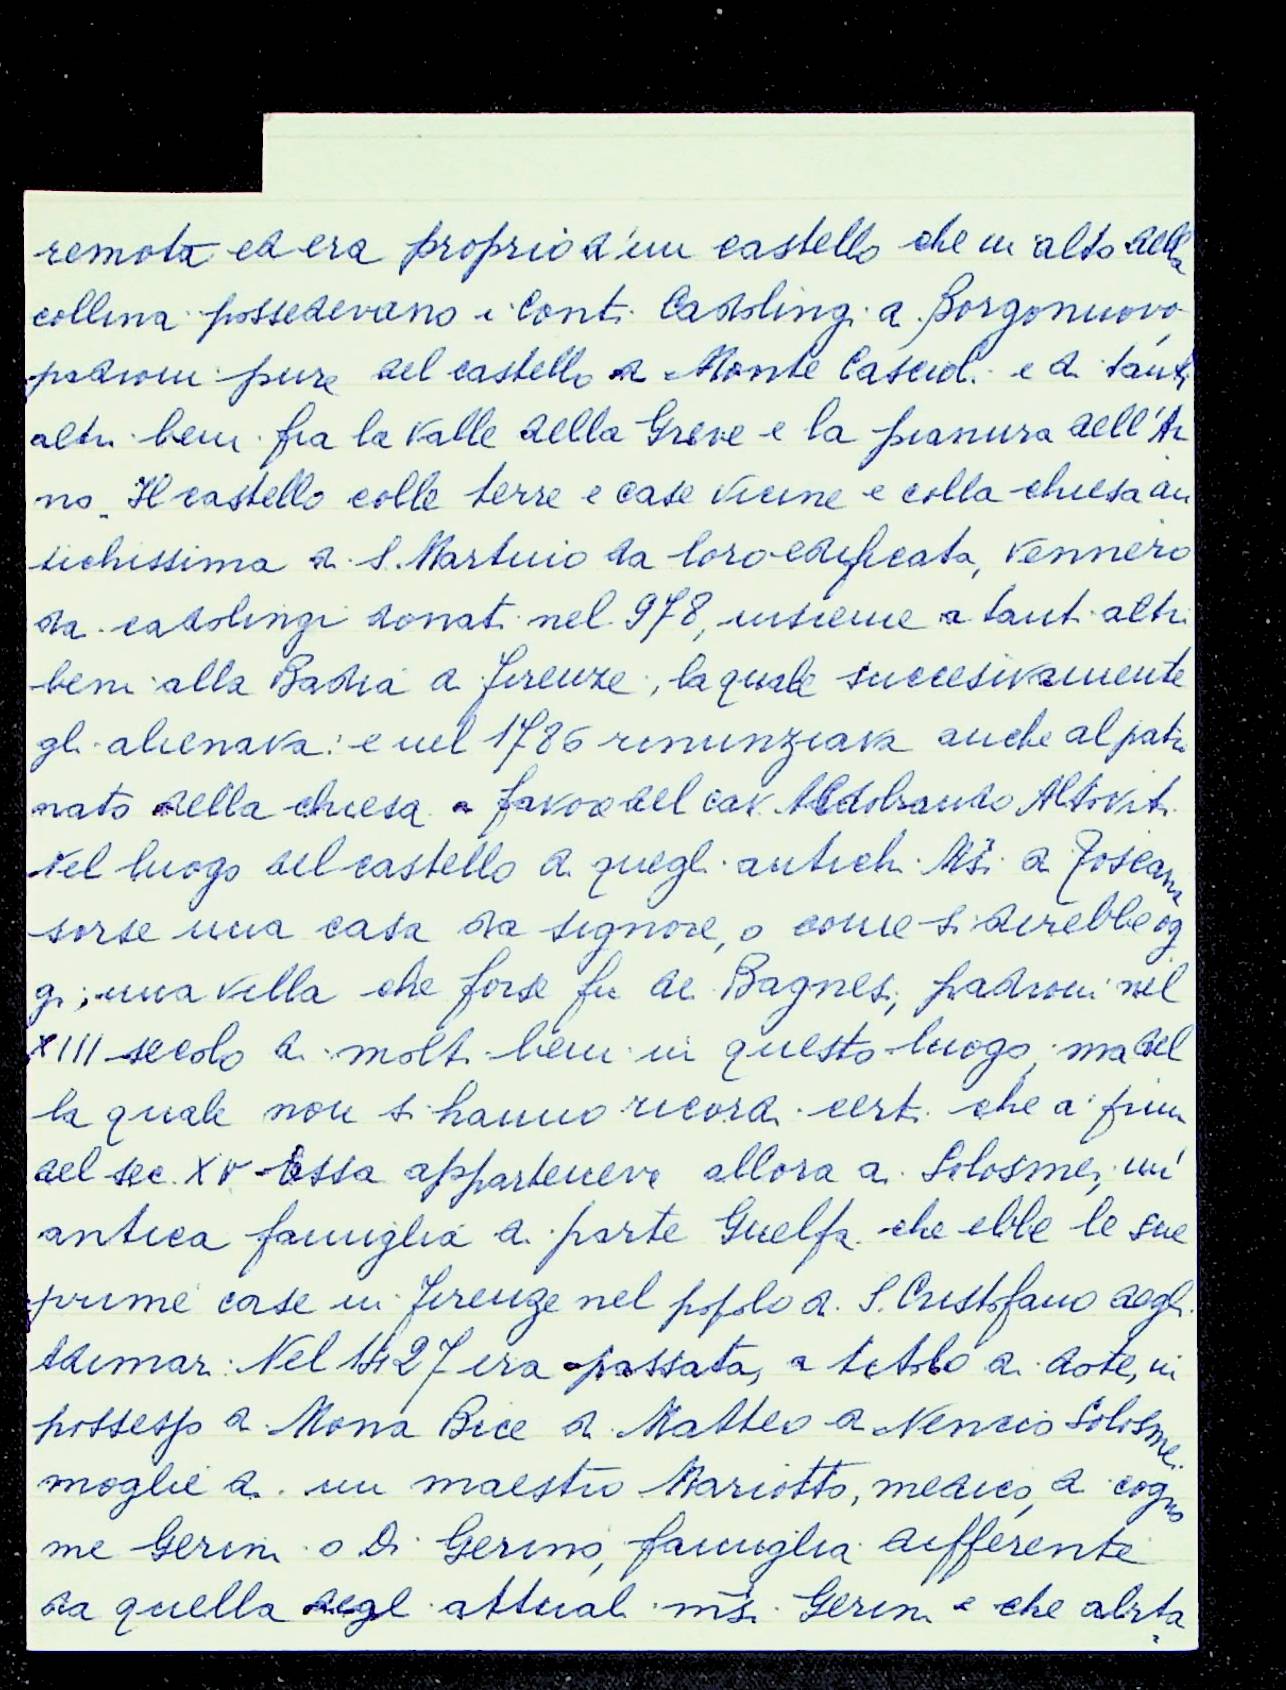 remota ed era proprio d'un castello che in alto della
collina possedevano i Conti Cadolingi di Borgonuovo,
padroni pure del castello di Monte Cascioli e di tanti
altri beni fra la valle della Greve e la pianura dell'Ar
no. Il castello colle terre e case vicine e colla chiesa an
tichissima di S. Martino da loro edificata, vennero
da cadolingi donati nel 978, insieme a tanti altri
beni alla Badia di Firenze, la quale succesivamente
gli alienava: e nel 1786 rinunziava anche al patro
nato della chiesa a favore del cav. Aldobrando Altoviti.
Nel luogo del castello di quegli antichi Msi. di Toscana
sorse una casa da signore, o come si direbbe og
gi, una villa che forse fu dei Bagnesi, padroni nel
XIII secolo di molti beni in questo luogo, ma del
la quale non si hanno ricordi certi che a' primi
del sec. XV Essa apparteneva allora ai Solosmei, un'
antica famiglia di parte Guelfa che ebbe le sue
prime case in Firenze nel popolo di S. Cristofano degli
Adimari. Nel 1427 era passata, a titolo di dote, in
possesso di Mona Bice di Matteo di Nencio Solosmei
moglie di un maestro Mariotto, medico, di cogno
me Gerini o Di Gerino, famiglia differente
da quella degli attuali msi. Gerini e che abita